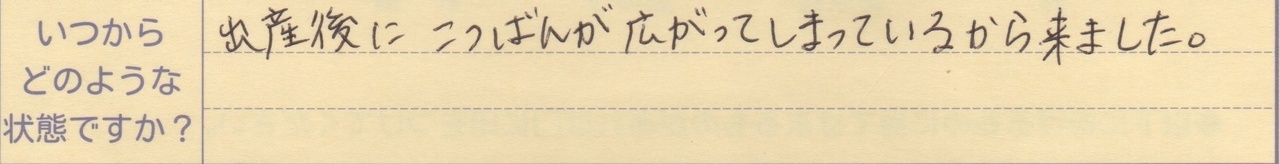 いつから
どのような
状態ですか?
出産後に こつばんが 広がってしまっているから来ました。